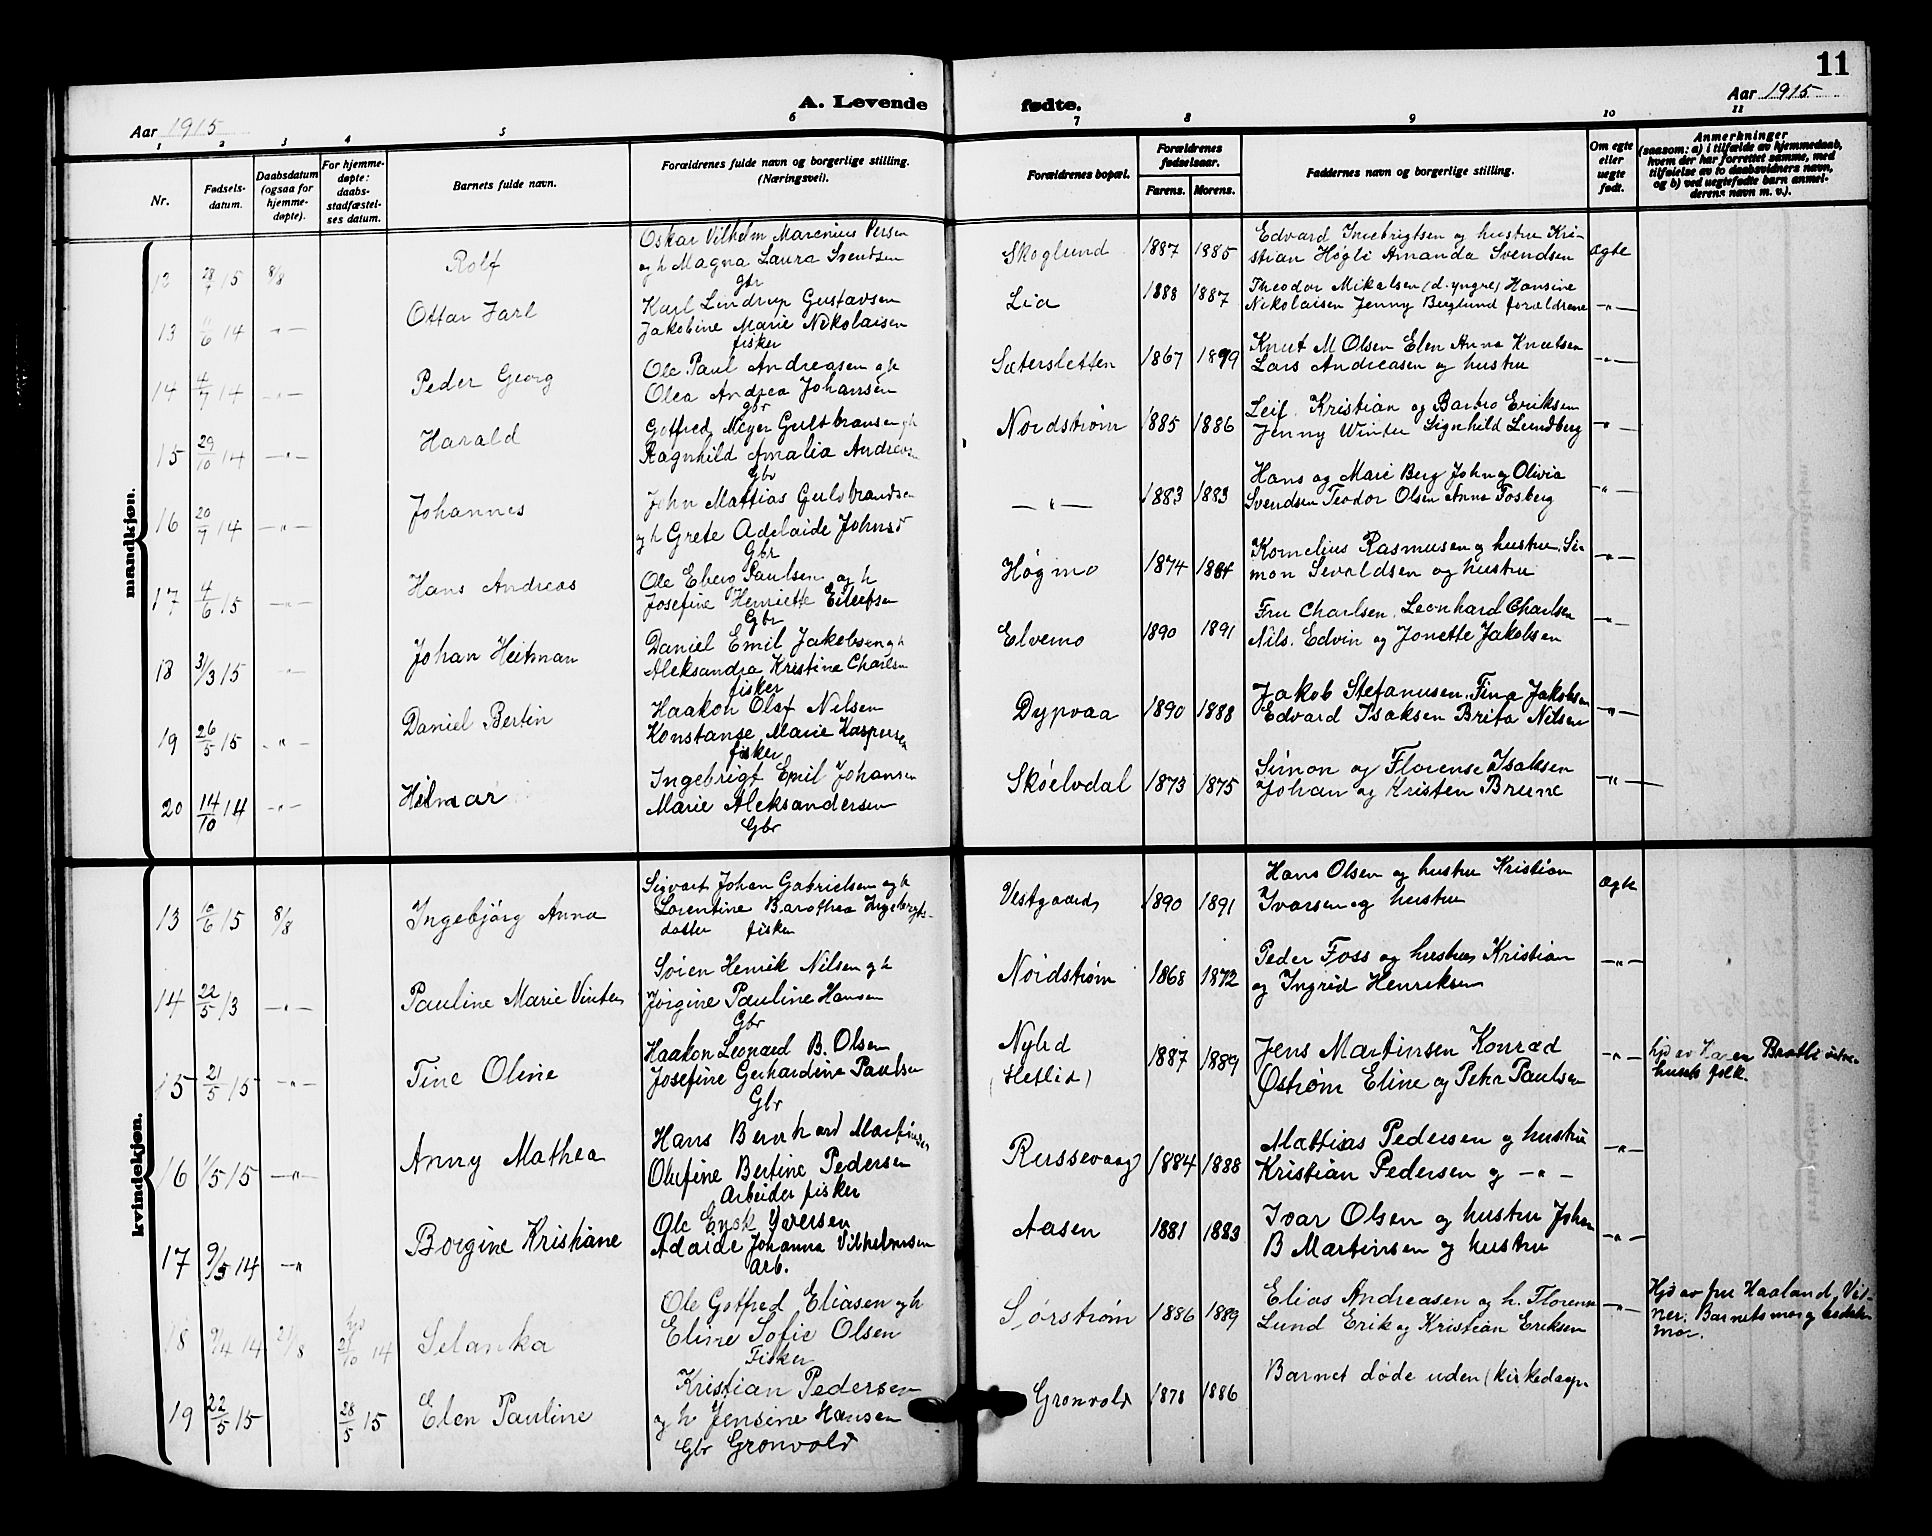 11
A. Levende fødte.
Aar 1915
Aar 1915
1 2 3 4 5 6 7 8 9 10 11
Nr.
Fødsels-
datum.
Daabsdatum
(ogsaa for
hjemme-
døpte).
For hjemme-
døpte:
daabs-
stadfæstel-
ses datum.
Barnets fulde navn.
Forældrenes fulde navn og borgerlige stilling.
(Næringsvei).
Forældrenes bopæl.
Forældrenes
fødselsaar.
Farens. Morens.
Faddernes navn og borgerlige stilling.
Om egte
eller
uegte
født.
Anmerkninger
(saasom: a) i tilfælde av hjemmedaab,
hvem der har forrettet samme, med
tilføielse av to daabsvidners navn,
og b) ved uegtefødte barn anmel-
derens navn m. v.).
mandkjøn.
12 28/7 15 8/8 Rolf
Oskar Vilhelm Marenius Persen
og h Magna Laura Svendsen
Gbr
Skoglund 1887 1885
Edvard Ingebrigtsen og hustru Kri-
stian Høgli Amanda Svendsen
ægte
13 11/6 14 -"- Ottar Jarl
Karl Lindrup Gustavsen
Jakobine Marie Nikolaisen
fisker
Lia 1888 1887
Theodor Mikalsen (d. yngre) Hansine
Nikolaisen Jenny Berglund forældrene
-"-
14 4/7 14 -"- Peder Georg
Ole Paul Andreasen og h
Olea Andrea Johansen
gbr
Sætersletten 1867 1879
Knut M Olsen Elen Anna Knutsen
Lars Andreasen og hustru
-"-
15 29/10 14 -"- Harald
Gotfred Meyer Gulbransen og h
Ragnhild Amalia Andreas
Gbr
Nordstrøm 1885 1886
Leif Kristian og Barbro Eriksen
Jenny Winter Signhild Lundberg
-"-
16 20/7 14 -"- Johannes
John Mattias Gulbrandsen
og h Grete Adelaide Johnsd
Gbr
-"- 1883 1883
Hans og Marie Berg John og Olivia
Svendsen Teodor Olsen Anna Fosberg
-"-
17 4/6 15 -"- Hans Andreas
Ole Ebero Paulsen og h
Josefine Henriette Eilertsen
Gbr
Høgmo 1874 1884
Kornelius Rasmusen og hustru. Si-
mon Sevaldsen og hustru
-"-
18 31/3 15 -"- Johan Heitman
Daniel Emil Jakobsen og h
Aleksandra Kristine Charlsen
fisker
Elvemo 1890 1891
Fru Charlsen. Leonhard Charlsen
Nils. Edvin og Jonette Jakobsen
-"-
19 26/5 15 -"- Daniel Bertin
Haakon Olaf Nilsen
Konstanse Marie Kaspersen
fisker
Dypvaa 1890 1888
Jakob Stefanusen. Tina Jakobsen
Edvard Isaksen Brita Nilsen
-"-
20 14/10 14 -"- Hilmar
Ingebrigt Emil Johansen
Marie Aleksandersen
Gbr
Skøelvdal 1873 1875
Simon og Florense Isaksen
Johan og Kristen Brune
-"-
kvindekjøn.
13 10/6 15 8/8 Ingebjørg Anna
Sigvart Johan Gabrielsen og h
Lorentine Barothea Ingebrigts-
datter fisker
Vestgaard 1890 1891
Hans Olsen og hustru Kristian
Ivarsen og hustru
ægte
14 22/5 13 -"- Pauline Marie Vinter
Søren Henrik Nilsen og h
Jørgine Pauline Hansen
Gbr
Nordstrøm 1868 1872
Peder Foss og hustru Kristian
og Ingrid Henriksen
-"-
15 21/5 15 -"- Tine Oline
Haakon Leonard B. Olsen
Josefine Gerhardine Paulsen
Gbr
Nylid
(Heflid) 1887 1889
Jens Martinsen Konrad
Østrøm Eline og Petra Paulsen
-"-
hjd av Bratli
husets folk.
16 1/5 15 -"- Anny Mathea
Hans Bernhard Martinsen
Olufine Bertine Pedersen
Arbeider fisker
Russevaag 1884 1888
Mattias Pedersen og hustru
Kristian Pedersen og -"-
-"-
17 9/5 14 -"- Borgine Kristiane
Ole Enok Iversen
Adaide Johanna Vilhelmsen
Arb.
Aasen 1881 1883
Ivar Olsen og hustru Johan
B Martinsen og hustru
-"-
18 9/4 14 21/8 hjd 21/10 14 Selanka
Ole Gotfred Eliasen og h
Eline Sofie Olsen
Fisker
Sørstrøm 1886 1889
Elias Andreasen og h. Florense
Lund Erik og Kristian Eriksen
-"-
Hjd av fru Haaland, Vid-
ner: Barnets mor og bedste-
mor.
19 22/5 15 28/5 15 Elen Pauline
Kristian Pedersen
og h Jensine Hansen
Gbr Grønvold
Grønvold 1878 1886
Barnet døde uden kirkedaap.